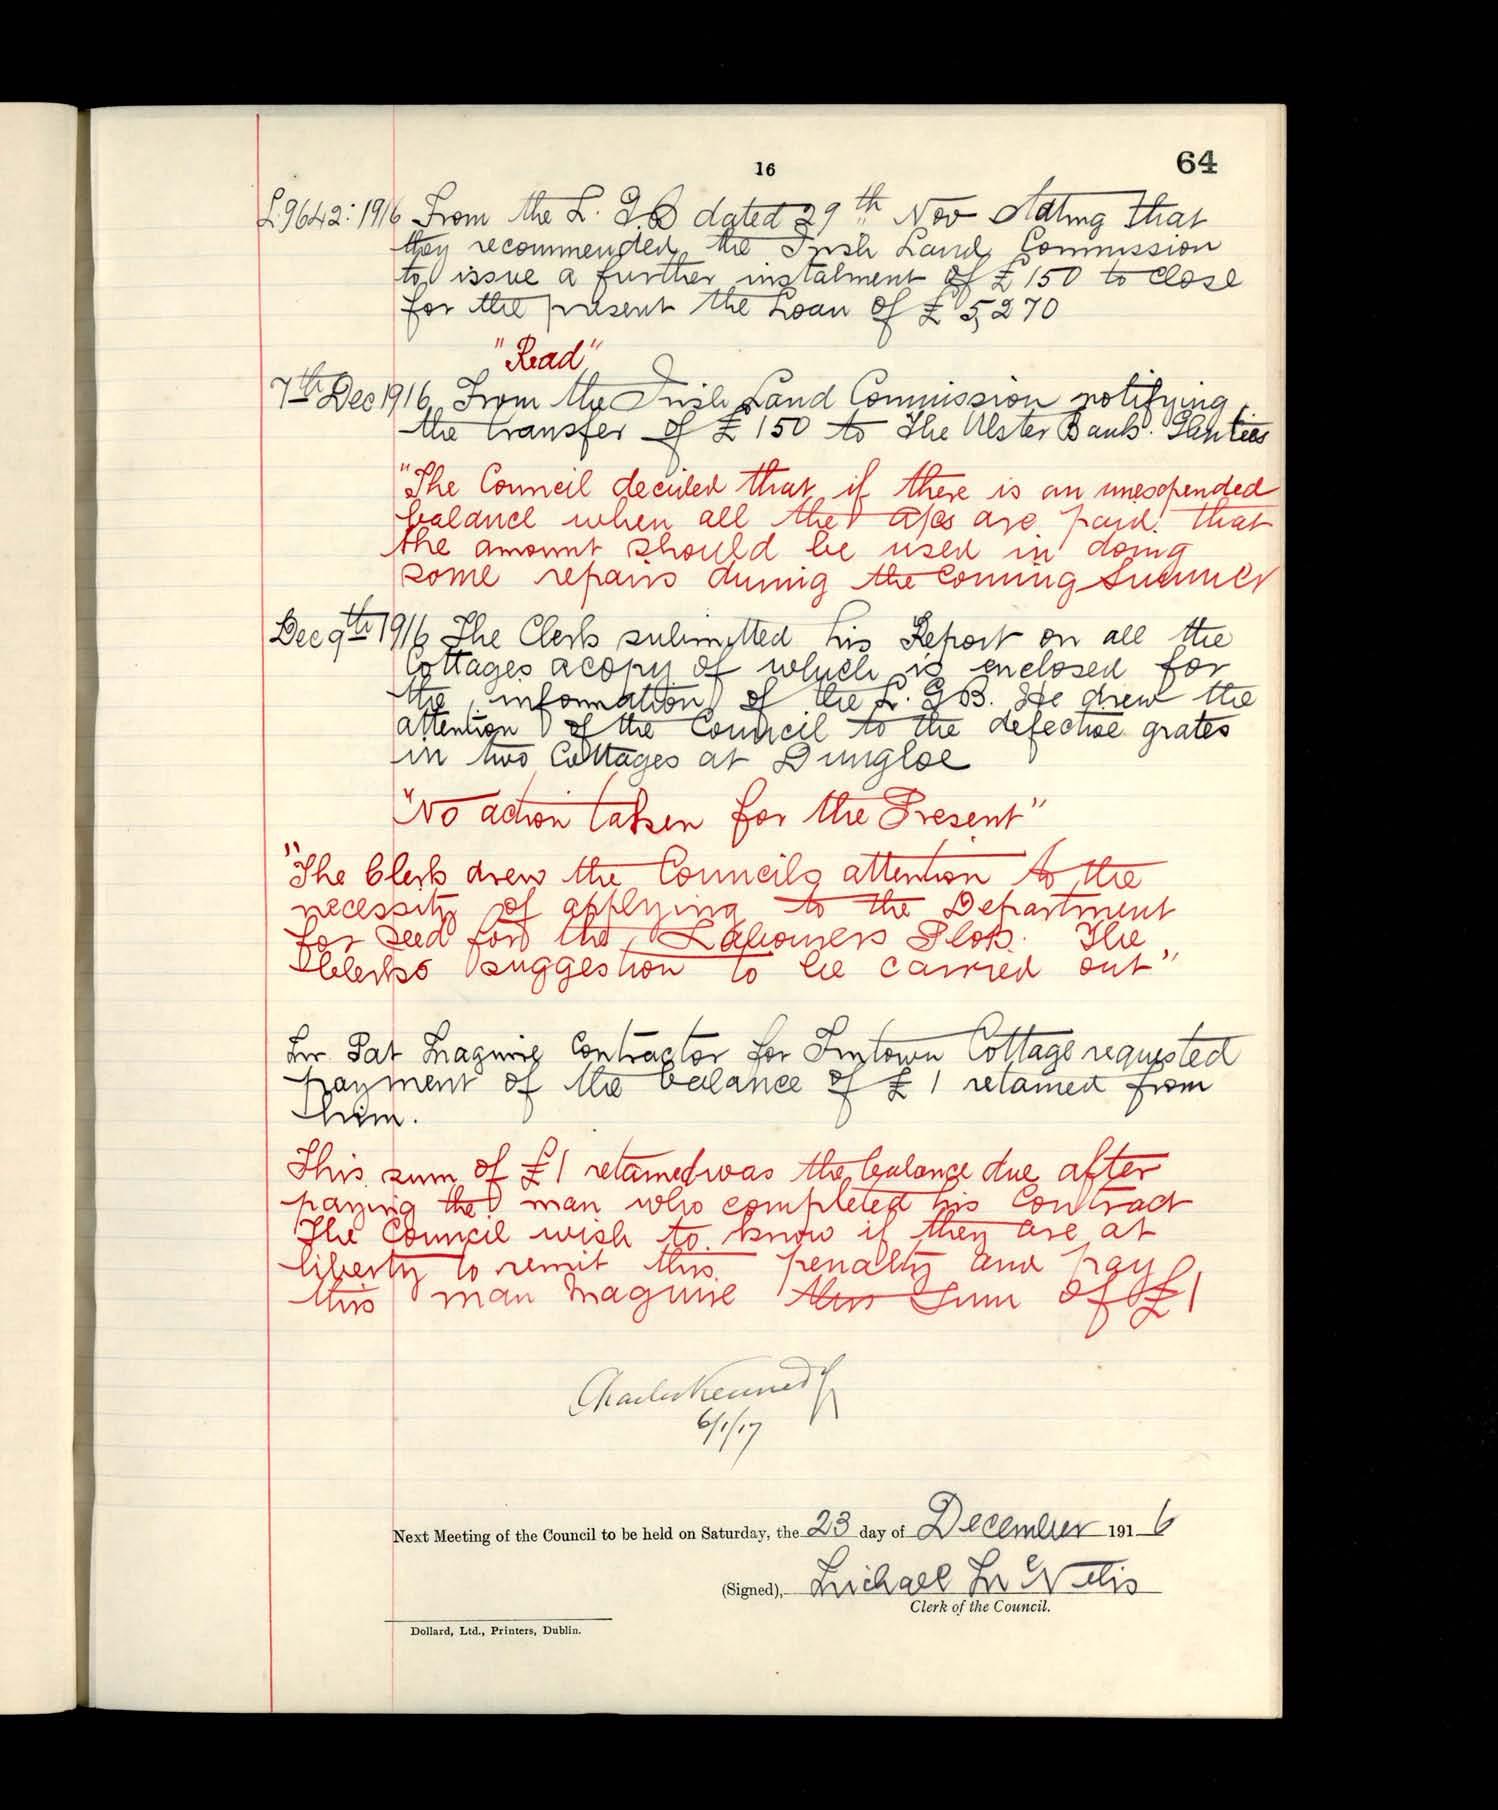 16
64
L.9642:1916 From the L.G.B dated 29th Nov stating that
they recommended the Irish Land Commission
to issue a further instalment of £150 to close
for the present the Loan of £5,270
"Read"
7th Dec 1916 From the Irish Land Commission notifying
the transfer of £150 to The Ulster Bank. Glenties
"The Council decided that if there is an unexpended
balance when all the a/cs are paid that
the amount should be used in doing
some repairs during the Coming Summer
Dec 9th 1916 The Clerk submitted his Report on all the
Cottages a copy of which is enclosed for
the information of the L.G.B. He drew the
attention of the Council to the defective grates
in two Cottages at Dungloe
"No action taken for the Present"
"The Clerk drew the Councils attention to the
necessity of applying to the Department
for seed for the Labourers Plots. The
Clerks suggestion to be carried out"
Mr. Pat Maguire Contractor for Tintown Cottage requested
payment of the balance of £1 retained from
him.
This sum of £1 retained was the balance due after
paying the man who completed his Contract
The Council wish to know if they are at
liberty to remit this penalty and pay
this man Maguire this Sum of £1
Charles Kennedy
6/1/17
Next Meeting of the Council to be held on Saturday, the 23 day of December 1916
(Signed), Michael McNelis
Clerk of the Council.
Dollard, Ltd., Printers, Dublin.